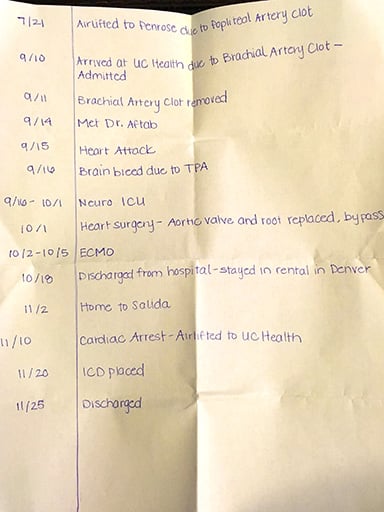 7/21 Airlifted to Penrose due to Popliteal Artery Clot
9/10 Arrived at UC Health due to Brachial Artery Clot -
Admitted
9/11 Brachial Artery Clot removed
9/14 Met Dr. Aftab
9/15 Heart Attack
9/16 Brain bleed due to TPA
9/16 - 10/1 Neuro ICU
10/1 Heart surgery - Aortic valve and root replaced, bypass
10/2-10/5 ECMO
10/18 Discharged from hospital - stayed in rental in Denver
11/2 Home to Salida
11/10 Cardiac Arrest - Airlifted to UC Health
11/20 ICD placed
11/25 Discharged